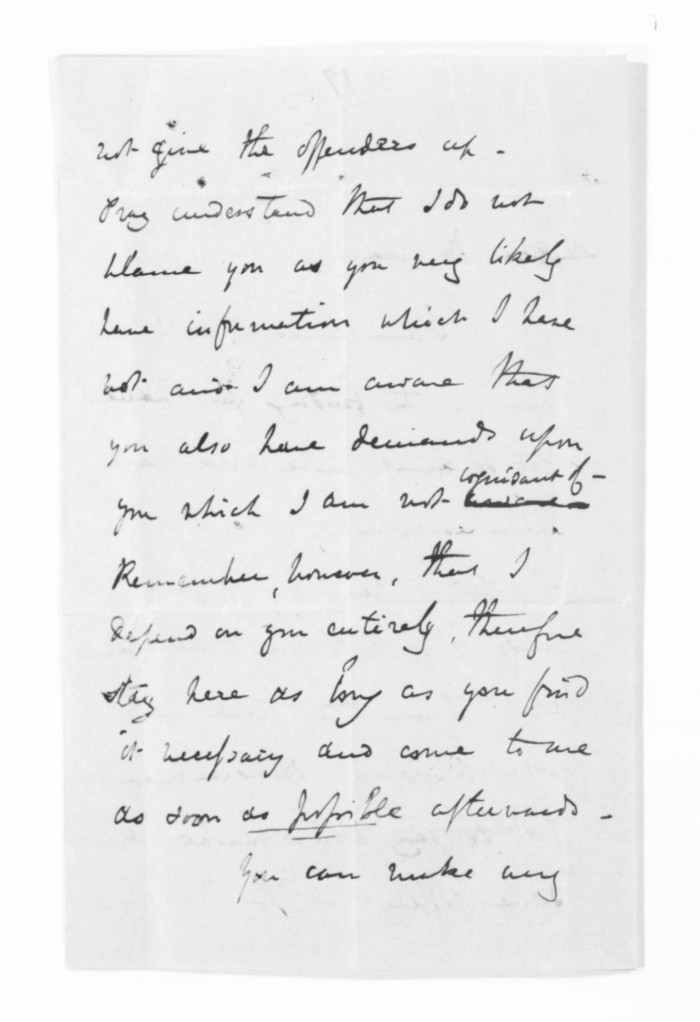 not give the offenders up -
Pray understand that I do not
blame you as you very likely
have information which I have
not and I am aware that
you also have demands upon
you which I am not ~~aware~~ cognisant of -
Remember, however, that I
depend on you entirely, therefore
stay here as long as you find
it necessary and come to me
as soon as possible afterwards -
You can make any